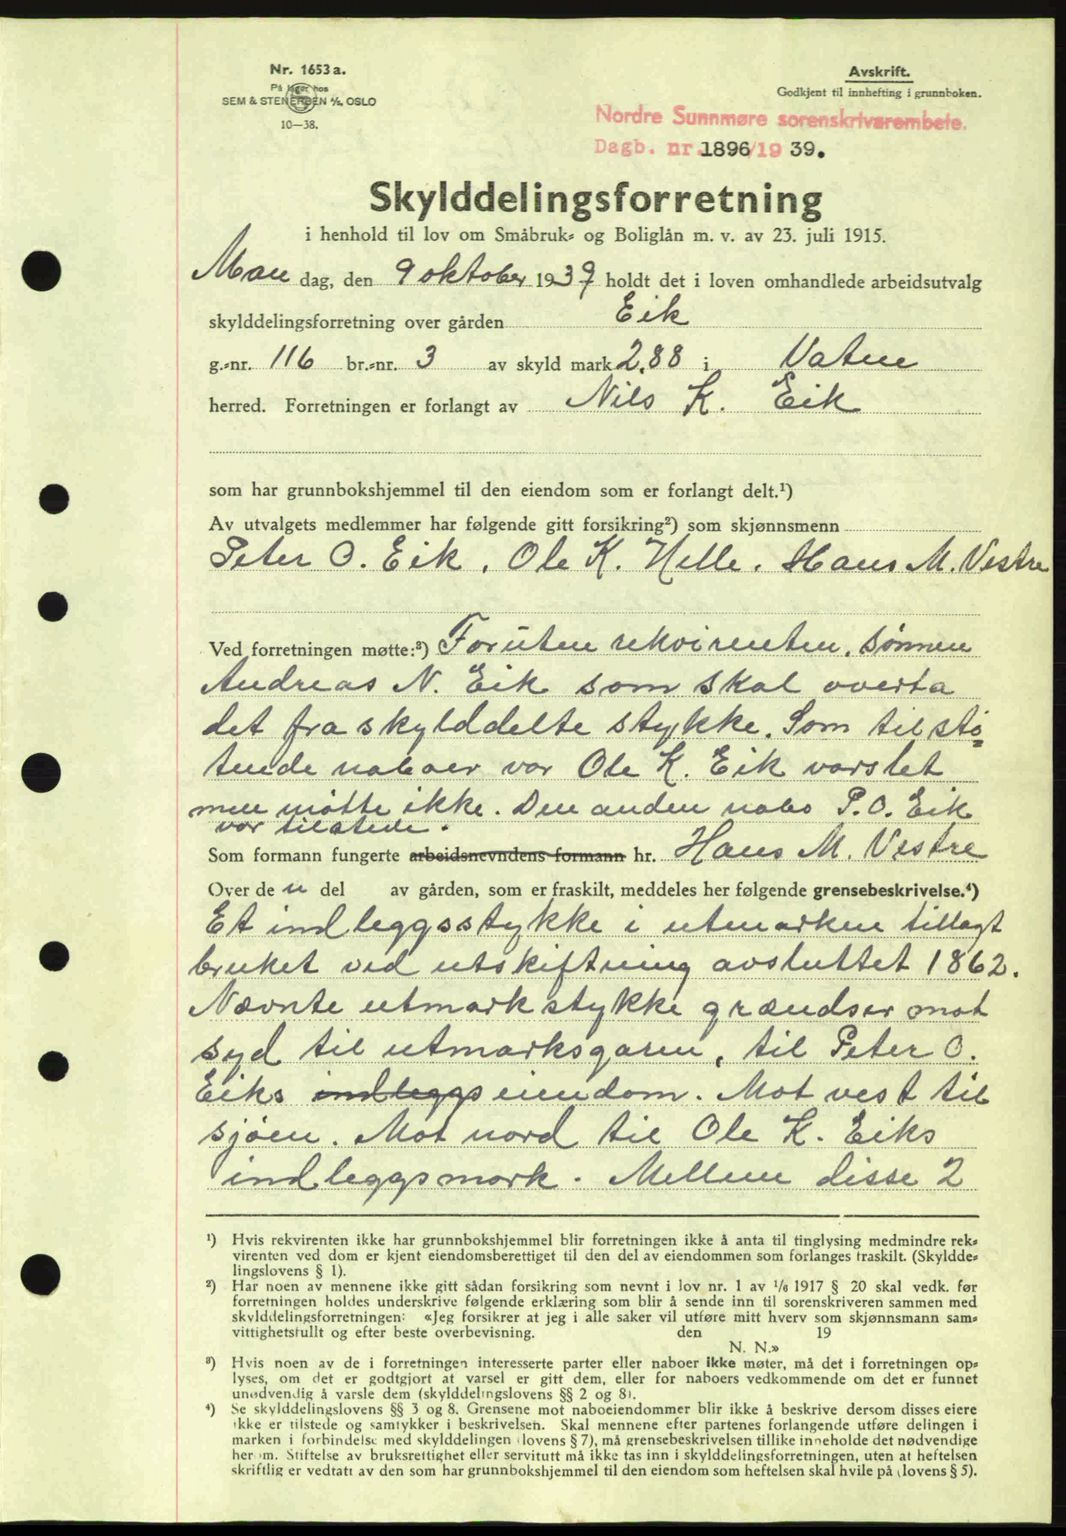 Nr. 1653 a.
På lager hos
SEM & STENERSEN A/S, OSLO
10—38.
Avskrift.
Godkjent til innhefting i grunnboken.
Nordre Sunnmøre sorenskriverembete.
Dagb. nr. 1896/19 39.
Skylddelingsforretning
i henhold til lov om Småbruk- og Boliglån m. v. av 23. juli 1915.
Man dag, den 9 oktober 1939 holdt det i loven omhandlede arbeidsutvalg
skylddelingsforretning over gården Eik
g.-nr. 116 br.-nr. 3 av skyld mark 2,88 i Vatne
herred. Forretningen er forlangt av Nils K. Eik
som har grunnbokshjemmel til den eiendom som er forlangt delt.¹)
Av utvalgets medlemmer har følgende gitt forsikring²) som skjønnsmenn
Peter O. Eik, Ole K. Helle, Hans M. Vestre
Ved forretningen møtte:³) Foruten rekvirenten, sønnen
Andreas N. Eik som skal overta
det fra skylddelte stykke. Som tilstö-
tende naboer var Ole K. Eik varslet
men møtte ikke. Den anden nabo P. O. Eik
var tilstede.
Som formann fungerte arbeidsnevndens formann hr. Hans M. Vestre
Over de n del av gården, som er fraskilt, meddeles her følgende grensebeskrivelse.⁴)
Et indleggsstykke i utmarken tillagt
bruket ved utskiftning avsluttet 1862.
Nævnte utmarkstykke grændser mot
syd til utmarksgaren, til Peter O.
Eiks indleggs eiendom. Mot vest til
sjøen. Mot nord til Ole K. Eiks
indleggsmark. Mellem disse 2
¹) Hvis rekvirenten ikke har grunnbokshjemmel blir forretningen ikke å anta til tinglysing medmindre rek-
virenten ved dom er kjent eiendomsberettiget til den del av eiendommen som forlanges fraskilt. (Skyldde-
lingslovens § 1).
²) Har noen av mennene ikke gitt sådan forsikring som nevnt i lov nr. 1 av 1/6 1917 § 20 skal vedk. før
forretningen holdes underskrive følgende erklæring som blir å sende inn til sorenskriveren sammen med
skylddelingsforretningen: «Jeg forsikrer at jeg i alle saker vil utføre mitt hverv som skjønnsmann sam-
vittighetsfullt og efter beste overbevisning. den 19
N. N.»
³) Hvis noen av de i forretningen interesserte parter eller naboer ikke møter, må det i forretningen op-
lyses, om det er godtgjort at varsel er gitt dem, eller for naboers vedkommende om det er funnet
unødvendig å varsle dem (skylddelingslovens §§ 2 og 8).
⁴) Se skylddelingslovens §§ 3 og 8. Grensene mot naboeiendommer blir ikke å beskrive dersom disses eiere
ikke er tilstede og samtykker i beskrivelsen. Skal mennene efter partenes forlangende utføre delingen i
marken i forbindelse med skylddelingen (lovens § 7), må grensebeskrivelsen tillike inneholde det nødvendige
her om. Stiftelse av bruksrettighet eller servitutt må ikke tas inn i skylddelingsforretningen, uten at heftelsen
skriftlig er vedtatt av den som har grunnbokshjemmel til den eiendom som heftelsen skal hvile på (lovens § 5).